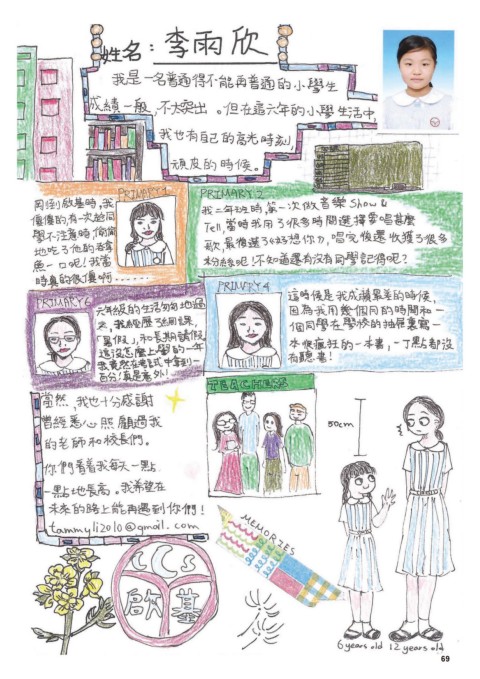 姓名：李雨欣
我是一名普通得不能再普通的小學生
成績一般，不太突出。但在這六年的小學生活中，
我也有自己的高光時刻，
頑皮的時候。
PRIMARY 1
剛到啟基時，我
傻傻的，有一次趁同
學不注意時，偷偷
地吃了他的吞拿
魚一口呢！我當
時真的很傻啊……
PRIMARY 2
我二年班時，第一次做音樂Show &
Tell，當時我用了很多時間選擇要唱甚麼
歌，最後選了《好想你》，唱完後還收獲了很多
粉絲呢！不知道還有沒有同學記得呢？
PRIMARY 6
六年級的生活匆匆地過
去，我經歷了網課，
「暑假」，和長期請假，
這沒怎麼上學的一年
我竟然在考試中拿到一
百分！真是意外！
PRIMARY 4
這時候是我成績最差的時候，
因為我用幾個月的時間和一
個同學在學校的抽屜裏寫一
本很瘋狂的一本書，一丁點都沒
有聽書！
當然，我也十分感謝
曾經悉心照顧過我
的老師和校長們。
你們看着我每天一點
一點地長高。我希望在
未來的路上能再遇到你們！
tammyli2010@gmail.com
TEACHERS
50cm
MEMORIES
CCCS
啟基
6 years old
12 years old
69